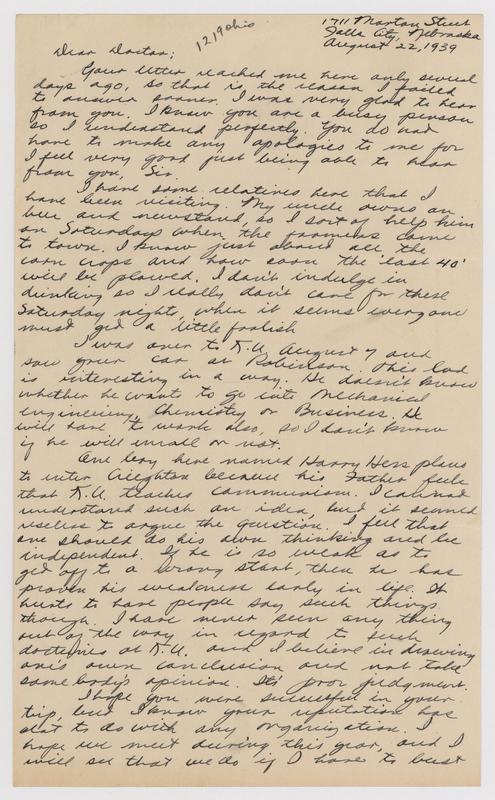 1711 Morton Street
Falls City, Nebraska
August 22, 1939
1219 Ohio
Dear Doctor;
Your letter reached me here only several
days ago, so that is the reason I failed
to answer sooner. I was very glad to hear
from you. I know you are a busy person
so I understand perfectly. You do not
have to make any apologies to me for
I feel very good just being able to hear
from you, Sir.
I have some relatives here that I
have been visiting. My uncle owns an
beer and newsstand, so I sort of help him
on Saturdays when the farmers come
to town. I know just about all the
corn crops and how soon the 'last 40'
will be plowed. I don't indulge in
drinking so I really don't care for these
Saturday nights, when it seems everyone
must get a little foolish
I was over to K.U. August 7 and
saw your car at Robinson. This lad
is interesting in a way. He doesn't know
whether he wants to go into Mechanical
engineering, Chemistry or Business. He
will have to work also, so I don't know
if he will enroll or not.
One boy here named Harry Hess plans
to enter Creighton because his Father feels
that K.U. teaches communism. I cannot
understand such an idea, but it seemed
useless to argue the question. I feel that
one should do his own thinking and be
independent. If he is so weak as to
get off to a wrong start, then he has
proven his weakness early in life. It
hurts to have people say such things
though. I have never seen any thing
out of the way in regard to such
doctrines at K.U. and I believe in drawing
one's own conclusion and not take
somebody's opinion. It's poor judgment.
I hope you were successful in your
trip, but I know your reputation has
alot to do with any organization. I
hope we meet during this year, and I
will see that we do if I have to bust